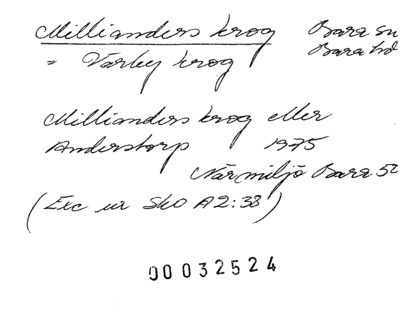 Millianders krog Bara sn
= Värby krog Bara hd
Millianders krog eller
Anderstorp 1975
När miljö Bara 52
(Exc ur SkO A2:38)
00032524